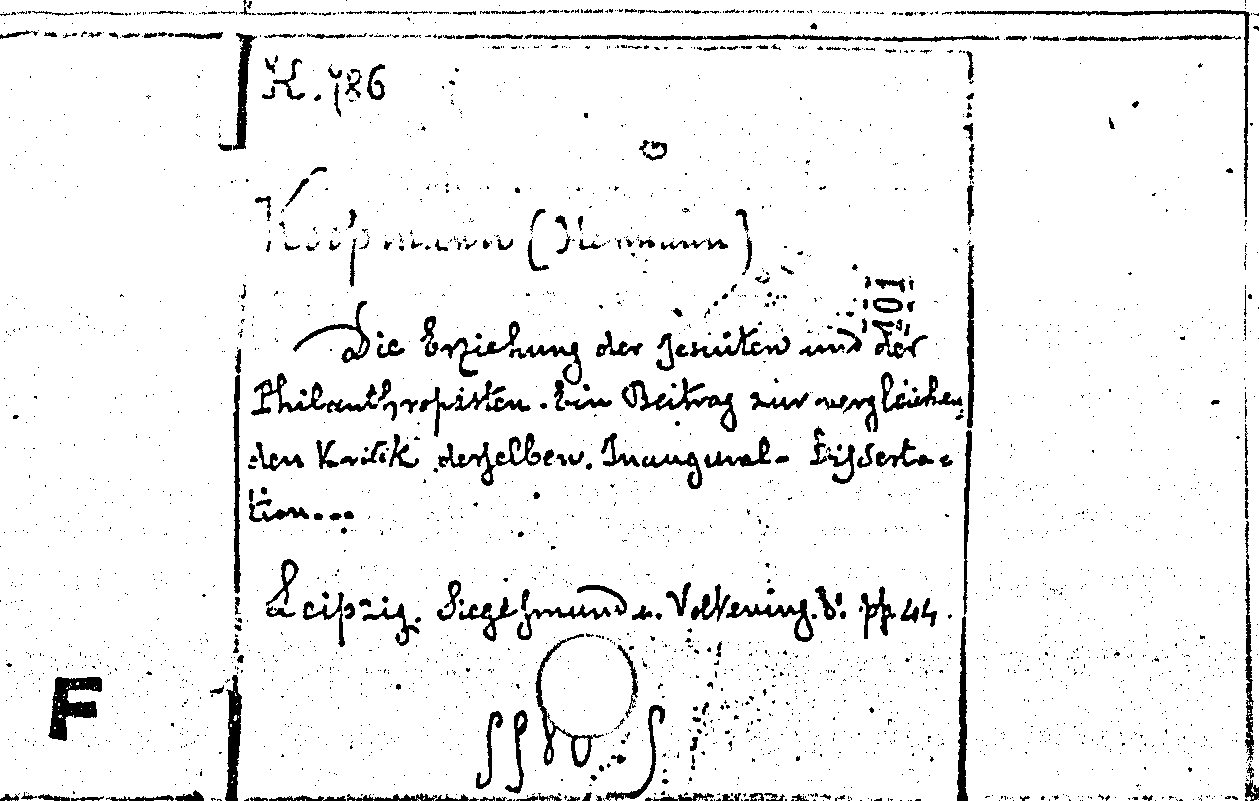 K. 786
Koopmann (Hermann)
101
Die Erziehung der Jesuiten und der
Philanthropisten. Ein Beitrag zur vergleichen
den Kritik derselben. Inaugural- Disserta-
tion...
Leipzig. Siegesmund u. Volkening. 8°. pp. 44.
F